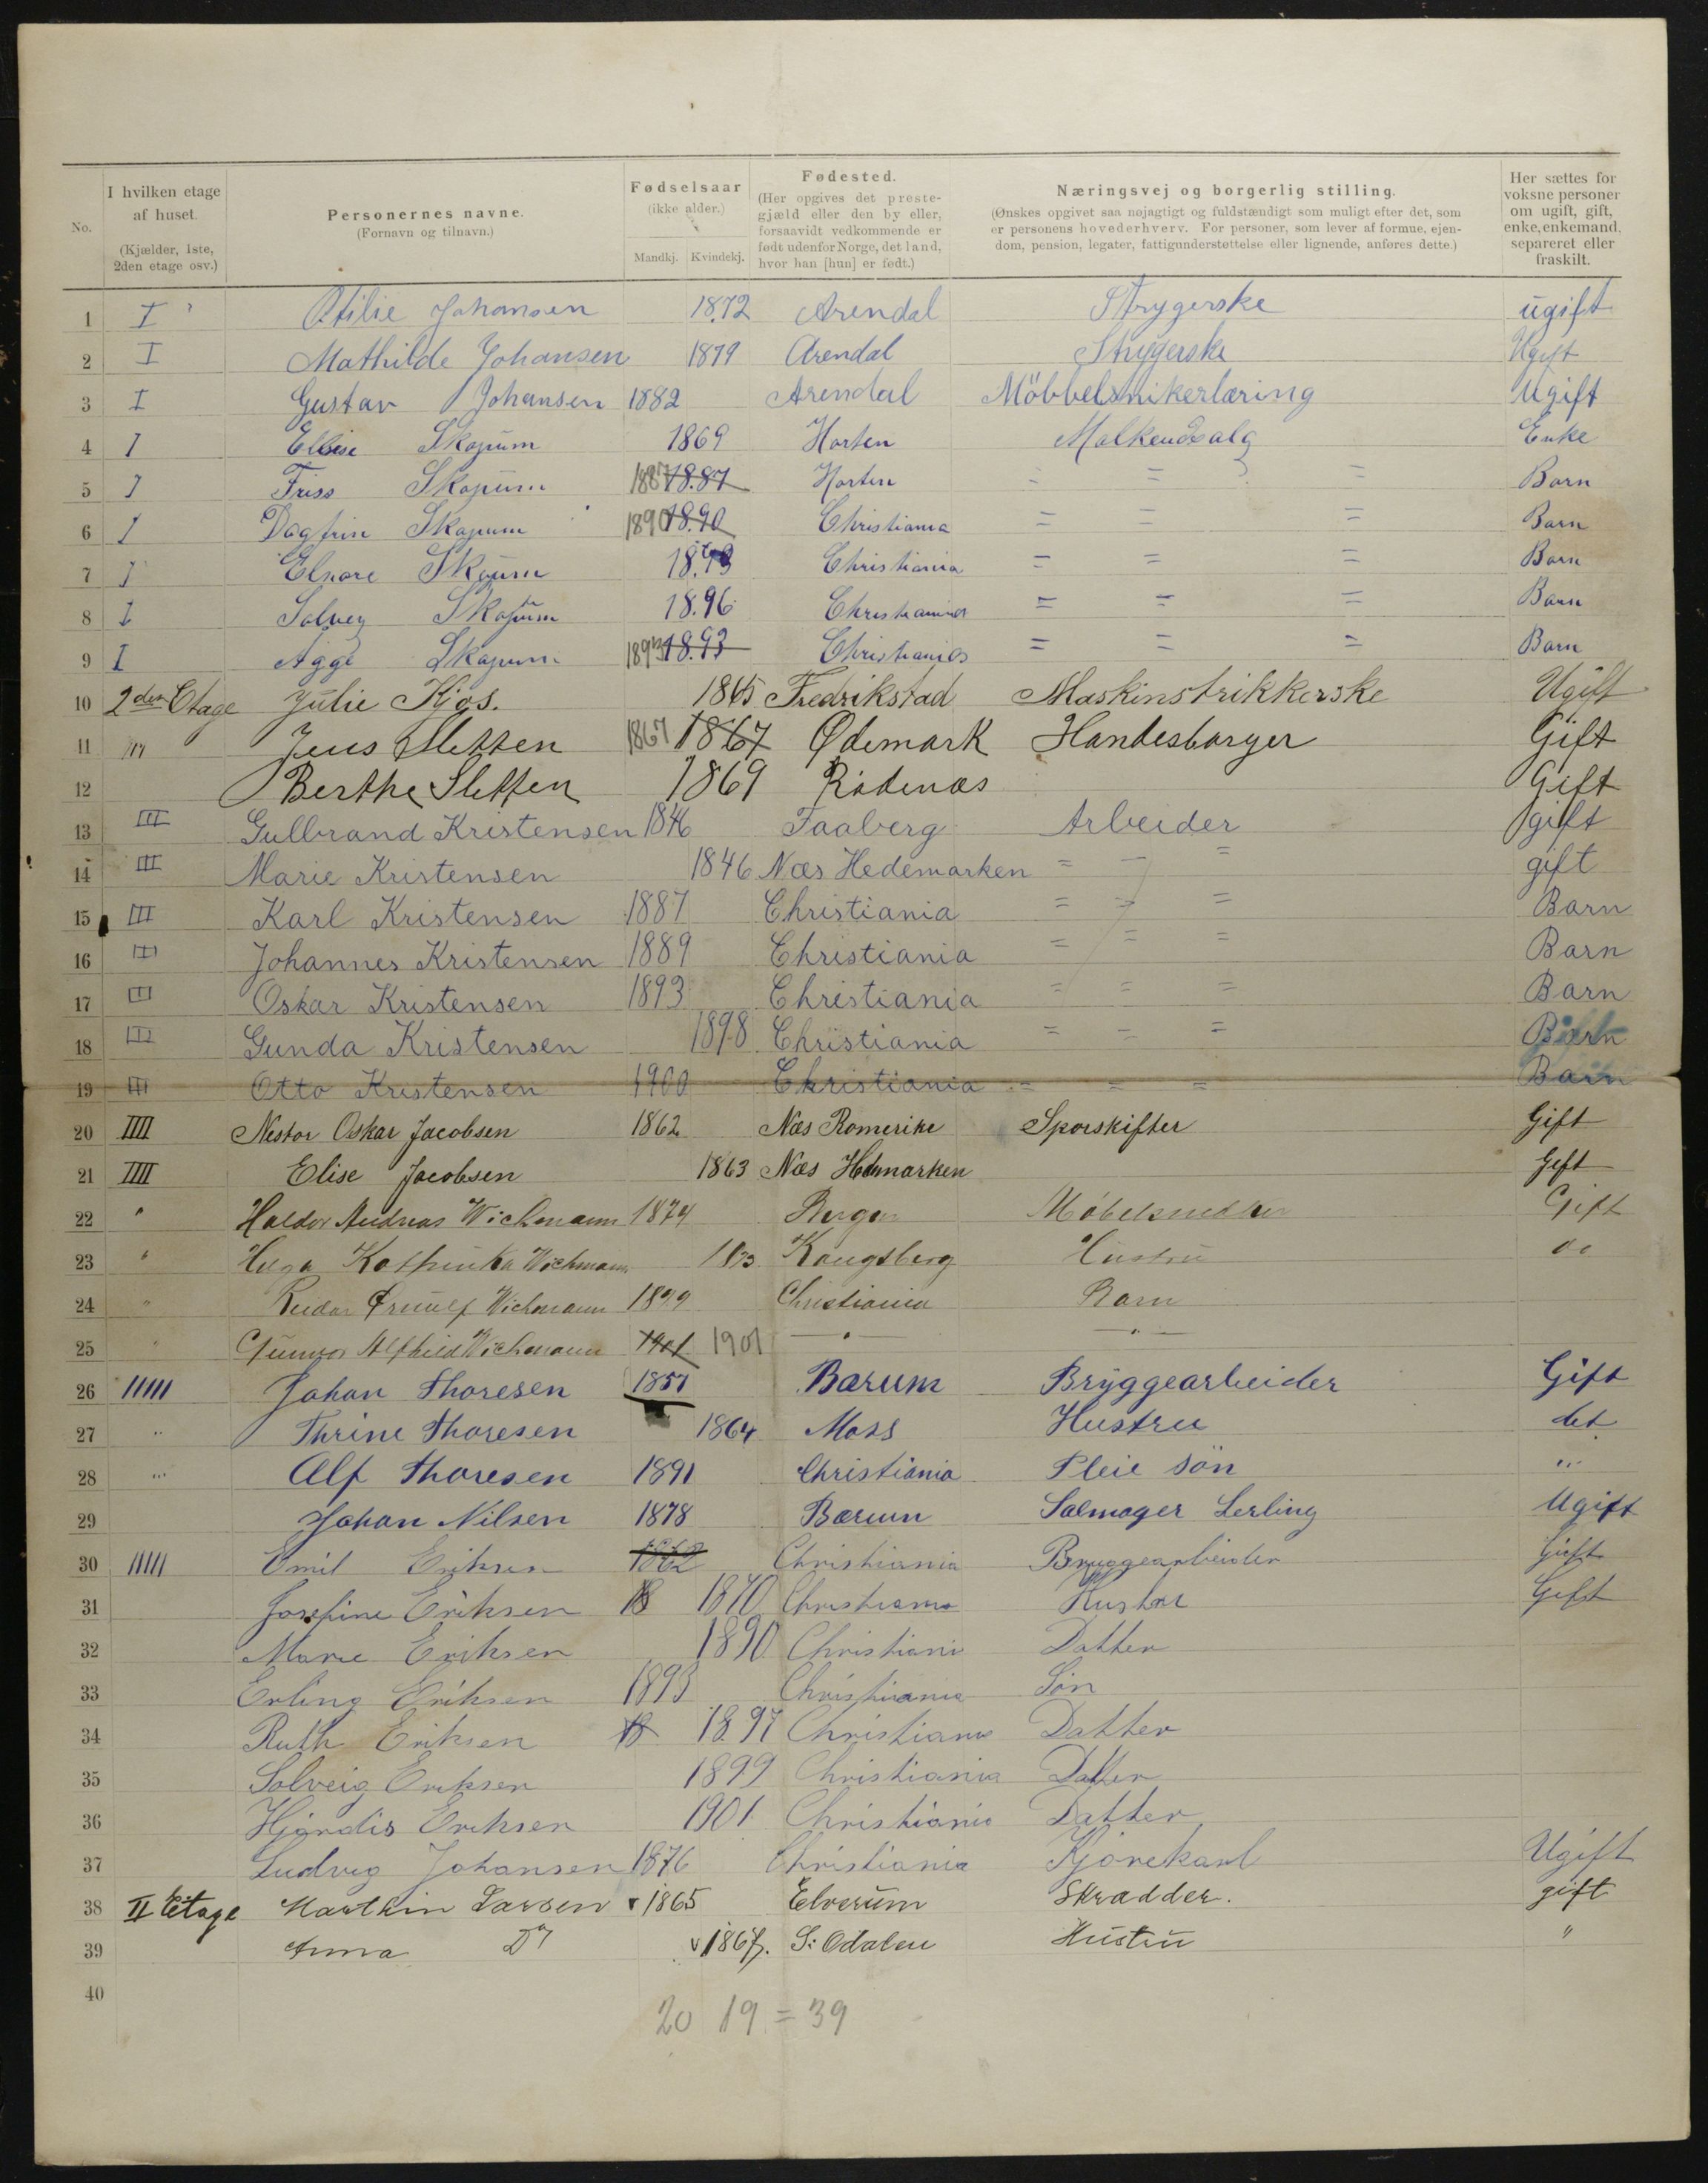 No. I hvilken etage af huset. (Kjælder, 1ste, 2den etage osv.) Personernes navne. (Fornavn og tilnavn.) Fødselsaar (ikke alder.) Mandkj. Kvindekj. Fødested. (Her opgives det prestegjæld eller den by eller, forsaavidt vedkommende er født udenfor Norge, det land, hvor han [hun] er født.) Næringsvej og borgerlig stilling. (Ønskes opgivet saa nøjagtigt og fuldstændigt som muligt efter det, som er personens hovederhverv. For personer, som lever af formue, ejendom, pension, legater, fattigunderstøttelse eller lignende, anføres dette.) Her sættes for voksne personer om ugift, gift, enke, enkemand, separeret eller fraskilt.
1 I Otilie Johansen 1872 Arendal Strygerske ugift
2 I Mathilde Johansen 1879 Arendal Strygerske Ugift
3 I Gustav Johansen 1882 Arendal Möbbelsnikerlæring Ugift
4 I Ellise Skopum 1869 Horten Malkeudsalg Enke
5 I Friss Skopum 1887 18.87 Horten = = = Barn
6 I Dagfin Skopum 1890 18.90 Christiania = = = Barn
7 I Skopum Christiania = = = Barn
8 I Solvey Skopum 18.96 Christiania = = = Barn
9 I Agge Skopum 1893 18.93 Christiania = = = Barn
10 2den Etage Julie Kjos. 1865 Fredrikstad Maskinstrikkerske Ugift
11 " Jens Sletten 1867 1867 Ødemark Handesborger Gift
12 Berthe Sletten 1869 Rödenæs Gift
13 III Gulbrand Kristensen 1846 Faaberg Arbeider gift
14 III Marie Kristensen 1846 Næs Hedemarken = = = gift
15 III Karl Kristensen 1887 Christiania = = = Barn
16 III Johannes Kristensen 1889 Christiania = = = Barn
17 III Oskar Kristensen 1893 Christiania = = = Barn
18 III Gunda Kristensen 1898 Christiania = = = Barn
19 III Otto Kristensen 1900 Christiania = = = Barn
20 IIII Nestor Oskar Jacobsen 1862 Næs Romerike Sporskifter Gift
21 IIII Elise Jacobsen 1863 Næs Hedmarken Gift
22 " Haldor Andreas Wichmann 1874 Bergen Möbelsnedker Gift
23 " Helga Wichmann Kongsberg Hustru
24 " Reidar Wichmann 1899 Christiania Barn
25 " Gunvor Alfhild Wichmann 1901 1901 — " — — " —
26 IIIII Johan Thoresen 1857 Bærum Bryggearbeider Gift
27 " Thrine Thoresen 1864 Moss Hustru det
28 " Alf Thoresen 1891 Christiania Pleie sön "
29 Johan Nilsen 1878 Bærum Salmager Lerling Ugift
30 IIIII Emil Eriksen 1862 Christiania Bryggearbeider Gift
31 Josefine Eriksen 18 1870 Christiania Hustru Gift
32 Marie Eriksen 1890 Christiania Datter
33 Erling Eriksen 1893 Christiania Sön
34 Ruth Eriksen 18 18.97 Christiania Datter
35 Solveig Eriksen 1899 Christiania Datter
36 Hjørdis Eriksen 1901 Christiania Datter
37 Ludvig Johansen 1876 Christiania Kjørekarl Ugift
38 II Etage Marthin Larsen 1865 Elverum Skrædder. gift
39 Anna Do 1867. S: Odalen Hustru "
40
20 19 = 39